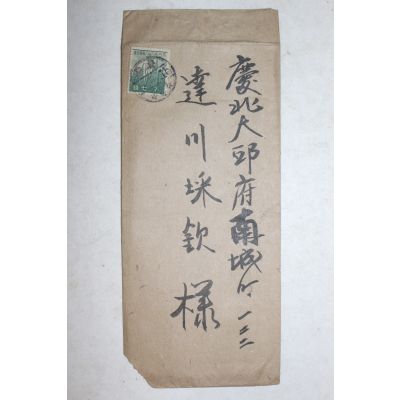 慶北大邱府南城町一二二
達川琛欽様